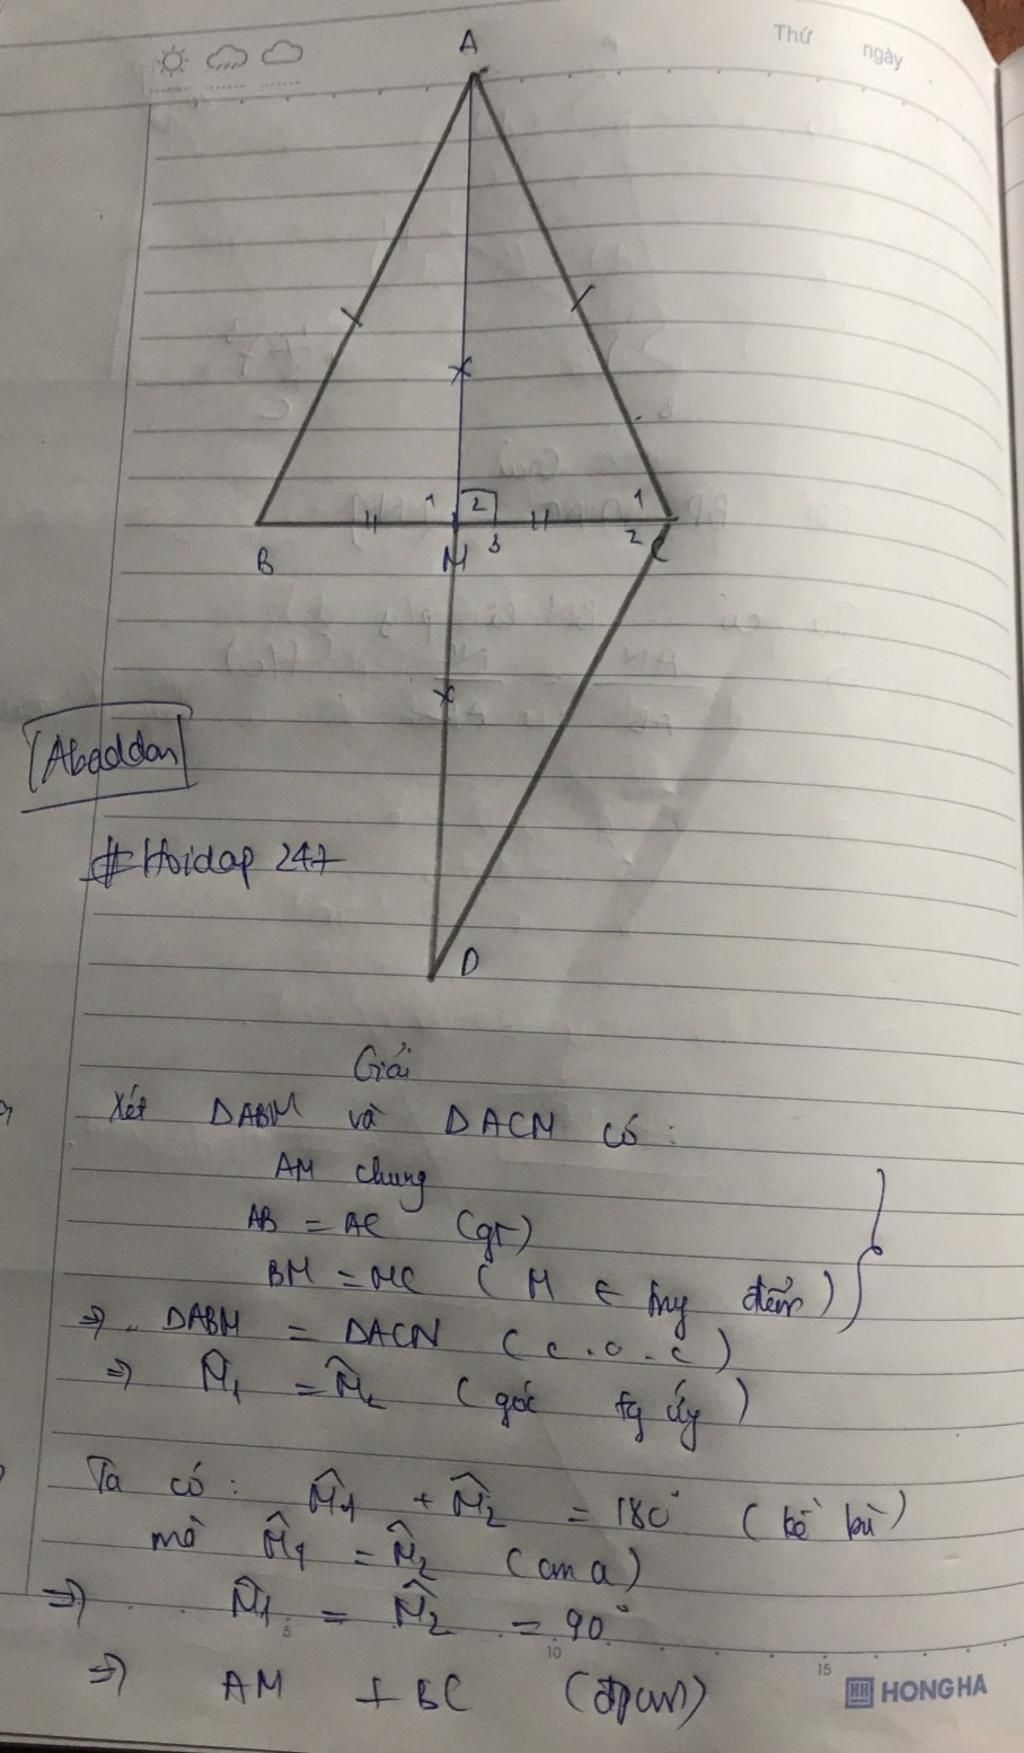 Thứ ngày
A
1 2 1
B M 3 2 C
[Abaddon]
#Hoidap 247
D
Giải
Xét DABM và DACM có :
AM chung
AB = AC (gt)
BM = MC ( M ∈ trung điểm )
=> DABM = DACM ( c . c . c )
=> M̂1 = M̂2 ( góc tg ứng )
Ta có : M̂1 + M̂2 = 180° ( kề bù )
mà M̂1 = M̂2 ( cm a )
=> M̂1 = M̂2 = 90°
5 10 15
=> AM ⊥ BC (đpcm)
HH HONG HA